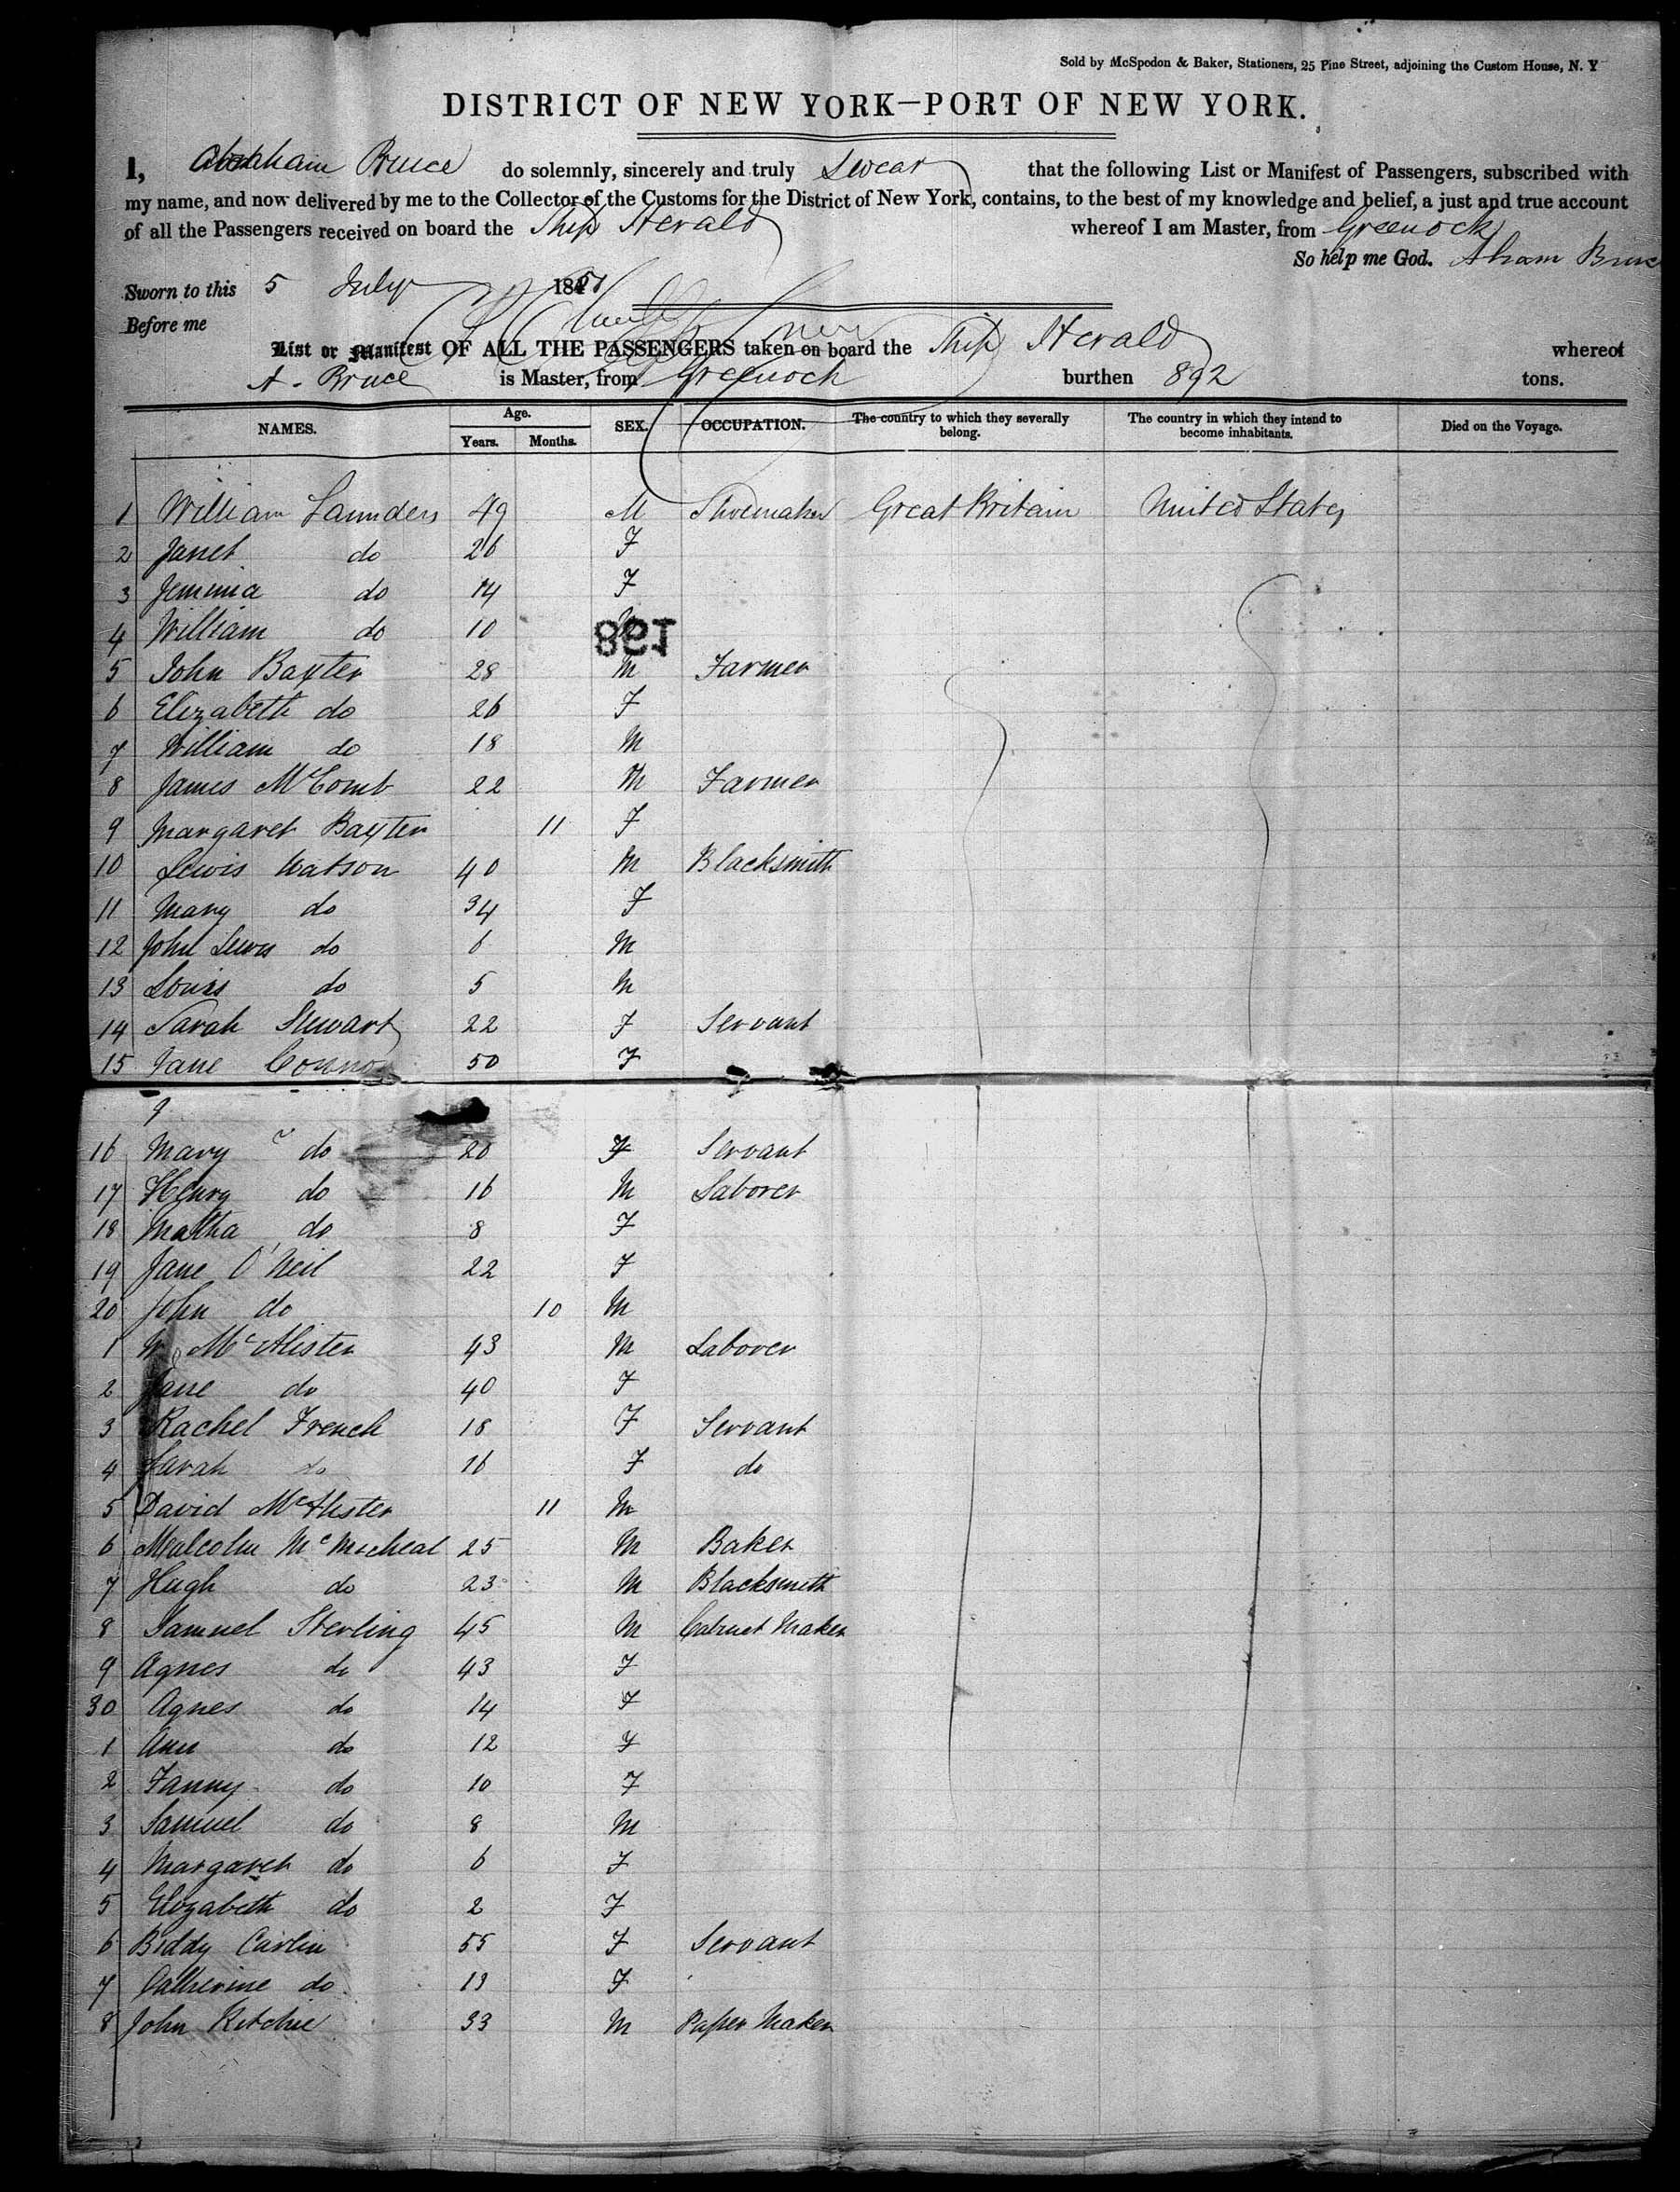 Sold by McSpedon & Baker, Stationers, 25 Pine Street, adjoining the Custom House, N. Y
DISTRICT OF NEW YORK—PORT OF NEW YORK.
I, Abraham Bruce do solemnly, sincerely and truly Swear that the following List or Manifest of Passengers, subscribed with
my name, and now delivered by me to the Collector of the Customs for the District of New York, contains, to the best of my knowledge and belief, a just and true account
of all the Passengers received on board the Ship Herald whereof I am Master, from Greenock
So help me God. Abram Bruce
Sworn to this 5 July 18
Before me
List or Manifest OF ALL THE PASSENGERS taken on board the Ship Herald whereof
A. Bruce is Master, from Greenock burthen 892 tons.
NAMES. Age. Years. Months. SEX. OCCUPATION. The country to which they severally belong. The country in which they intend to become inhabitants. Died on the Voyage.
1 William Saunders 49 M Shoemaker Great Britain United States
2 Janet do 26 F
3 Jemima do 14 F
4 William do 10 M
198
5 John Baxter 28 M Farmer
6 Elizabeth do 26 F
7 William do 18 M
8 James McComb 22 M Farmer
9 Margaret Baxter 11 F
10 Lewis Watson 40 M Blacksmith
11 Mary do 34 F
12 John Lewis do 6 M
13 Louis do 5 M
14 Sarah Stewart 22 F Servant
15 Jane Connor 50 F
16 Mary do 20 F Servant
17 Henry do 16 M Laborer
18 Matha do 8 F
19 Jane O'Neil 22 F
20 John do 10 M
1 W McAlister 43 M Laborer
2 Jane do 40 F
3 Rachel French 18 F Servant
4 Sarah do 16 F do
5 David McAlister 11 M
6 Malcolm McMicheal 25 M Baker
7 Hugh do 23 M Blacksmith
8 Samuel Sterling 45 M Cabinet Maker
9 Agnes do 43 F
30 Agnes do 14 F
1 Ann do 12 F
2 Fanny do 10 F
3 Samuel do 8 M
4 Margaret do 6 F
5 Elizabeth do 2 F
6 Biddy Carlin 55 F Servant
7 Catherine do 13 F
8 John Ritchie 33 M Paper Maker